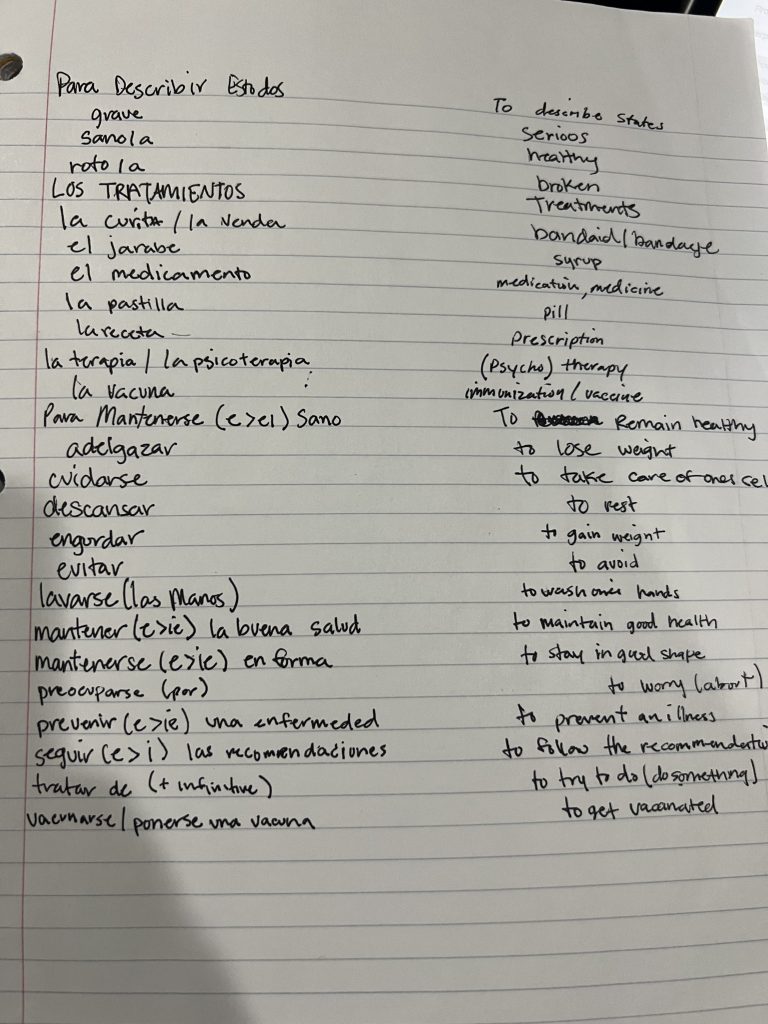 Para Describir Estados To describe states
grave serioos
sano/a healthy
roto/a broken
LOS TRATAMIENTOS Treatments
la curita / la venda bandaid/bandage
el jarabe syrup
el medicamento medication, medicine
la pastilla pill
la receta prescription
la terapia / la psicoterapia (psycho) therapy
la vacuna immunization / vaccine
Para Mantenerse (e>ei) Sano To Remain healthy
adelgazar to lose weight
cuidarse to take care of ones cel
descansar to rest
engordar to gain weight
evitar to avoid
lavarse (las manos) to wash one's hands
mantener (e>ie) la buena salud to maintain good health
mantenerse (e>ie) en forma to stay in good shape
preocuparse (por) to worry (abort)
prevenir (e>ie) una enfermeded to prevent an illness
seguir (e>i) las recomendaciones to follow the recommendatio
tratar de (+ infinitive) to try to do (do something)
vacunarse / ponerse una vacuna to get vacanated